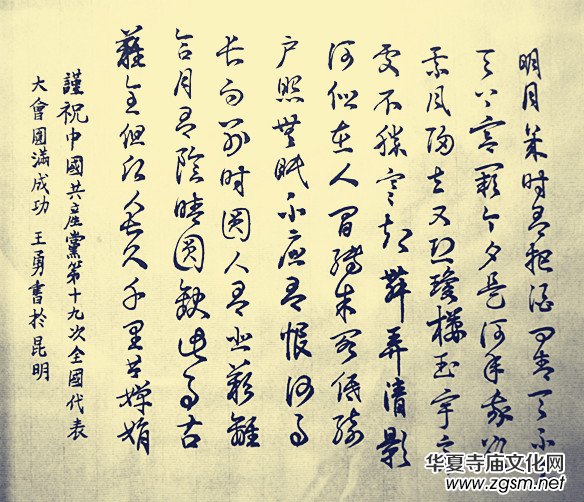 明月幾时有把酒问青天不
天上宫阙今夕是何年我欲
乘风归去又恐瓊樓玉宇高
處不勝寒起舞弄清影
何似在人间转朱阁低绮
户照無眠不应有恨何事
长向别时圆人有悲歡離
合月有陰晴圆缺此事古
難全但願人长久千里共嬋娟
謹祝中國共産黨第十九次全國代表
大會圓滿成功 王勇書於昆明
华夏寺庙文化网
www.zgsm.net